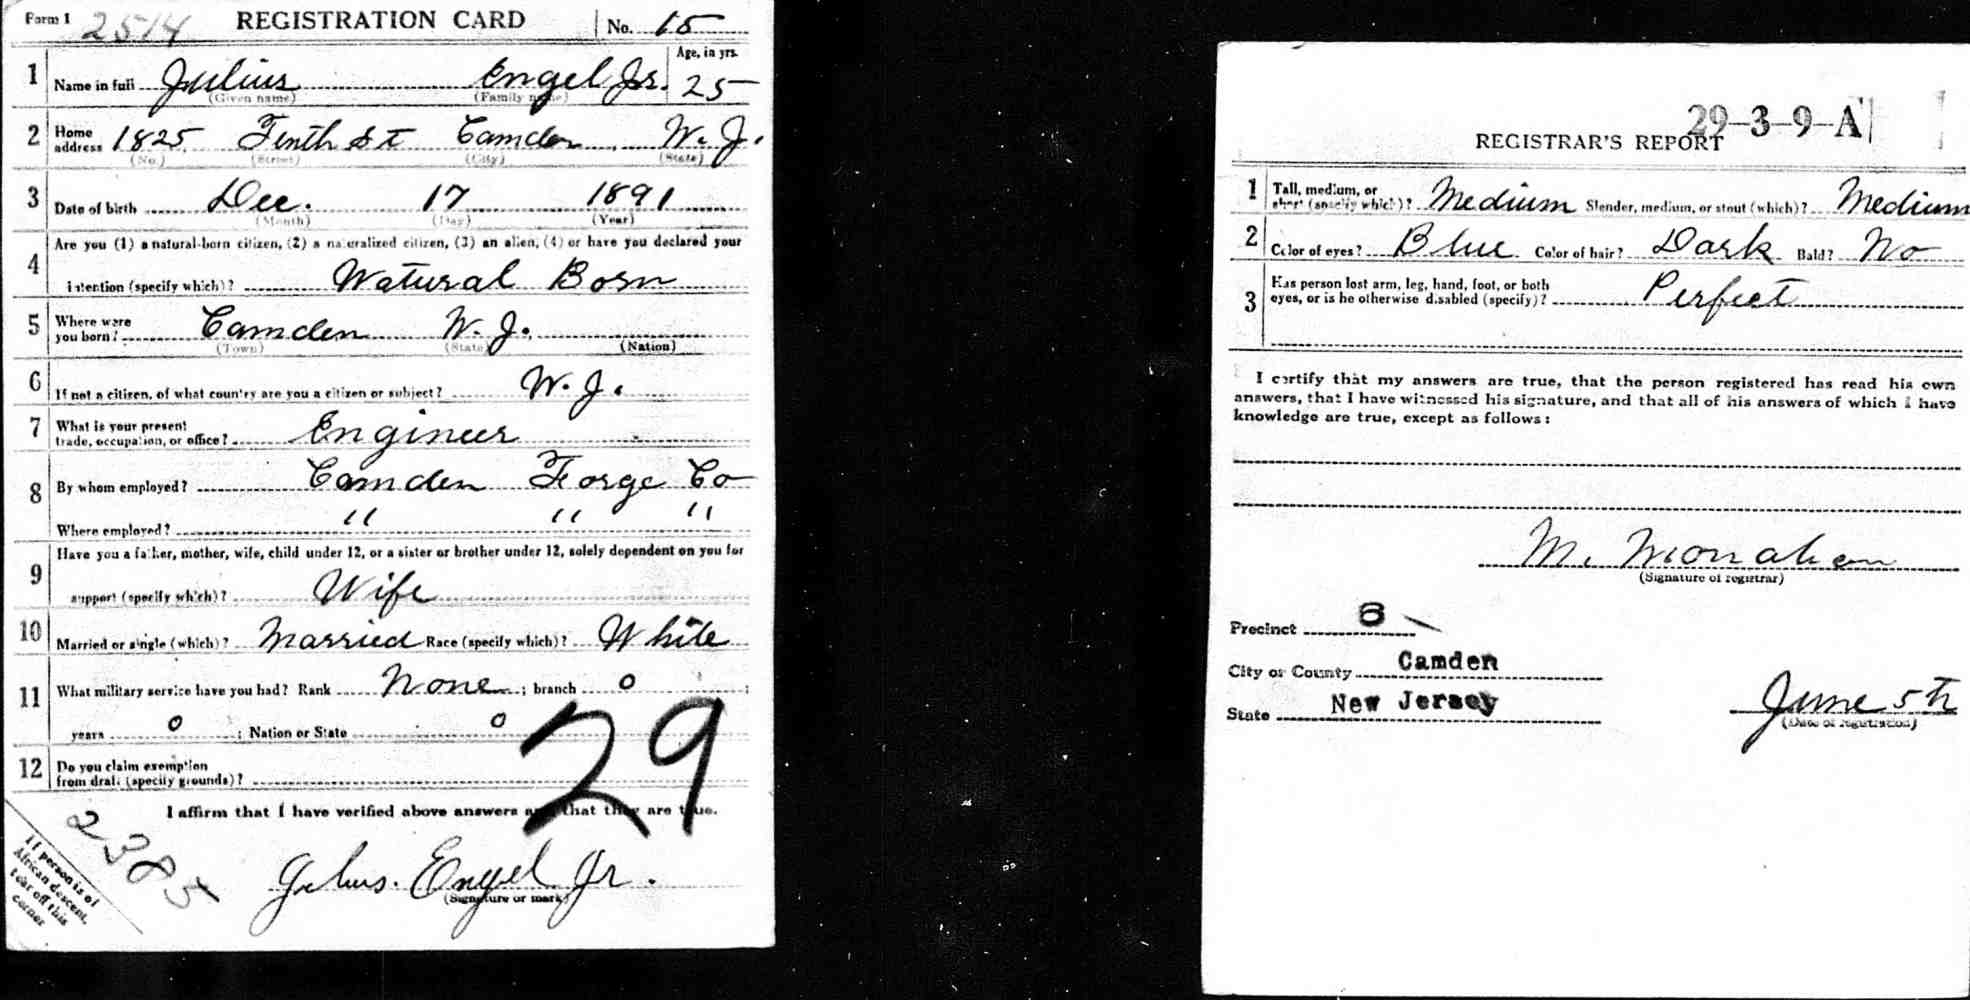 Form 1 2514 REGISTRATION CARD No. 15
Age, in yrs.
1 Name in full Julius Engel Jr. 25
(Given name) (Family name)
2 Home address 1825 Tenth St Camden N. J.
(No.) (Street) (City) (State)
3 Date of birth Dec. 17 1891
(Month) (Day) (Year)
Are you (1) a natural-born citizen, (2) a naturalized citizen, (3) an alien, (4) or have you declared your
4 intention (specify which)? Natural Born
5 Where were you born? Camden N. J.
(Town) (State) (Nation)
6 If not a citizen, of what country are you a citizen or subject? N. J.
7 What is your present trade, occupation, or office? Engineer
8 By whom employed? Camden Forge Co
Where employed? " " "
Have you a father, mother, wife, child under 12, or a sister or brother under 12, solely dependent on you for
9 support (specify which)? Wife
10 Married or single (which)? Married Race (specify which)? White
11 What military service have you had? Rank None ; branch 0 ;
years 0 ; Nation or State 0
29
12 Do you claim exemption from draft (specify grounds)?
I affirm that I have verified above answers and that they are true.
2385
Julius. Engel Jr.
(Signature or mark)
If person is of
African descent,
tear off this
corner
29-3-9-A
REGISTRAR'S REPORT
1 Tall, medium, or short (specify which)? Medium Slender, medium, or stout (which)? Medium
2 Color of eyes? Blue Color of hair? Dark Bald? No
3 Has person lost arm, leg, hand, foot, or both eyes, or is he otherwise disabled (specify)? Perfect
I certify that my answers are true, that the person registered has read his own
answers, that I have witnessed his signature, and that all of his answers of which I have
knowledge are true, except as follows:
M. Monahan
(Signature of registrar)
Precinct 8
City or County Camden
State New Jersey
June 5th
(Date of registration)